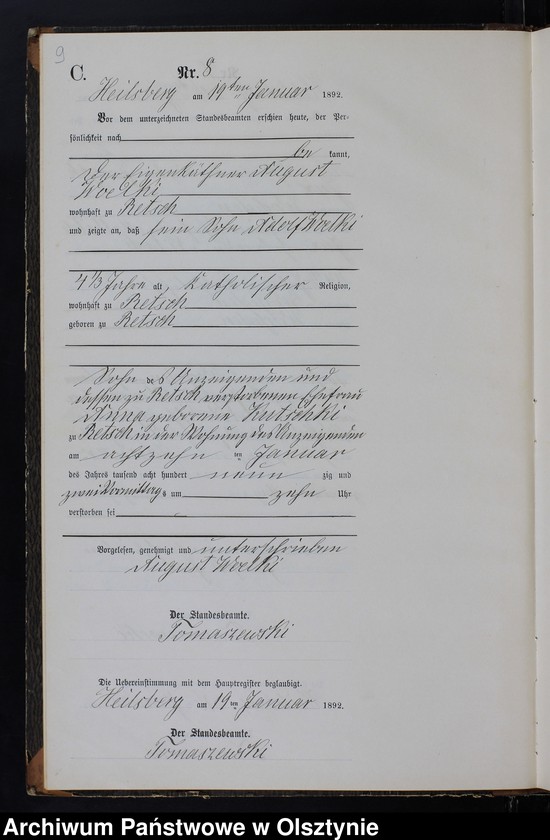 9
C. Nr. 8
Heilsberg am 19ten Januar 1892.
Vor dem unterzeichneten Standesbeamten erschien heute, der Per-
sönlichkeit nach
be kannt,
der Eigenkäthner August
Woelki
wohnhaft zu Retsch
und zeigte an, daß sein Sohn Adolf Woelki
4 1/2 Jahre alt, Katholischer Religion,
wohnhaft zu Retsch
geboren zu Retsch
Sohn des Anzeigenden und
dessen zu Retsch verstorbenen Ehefrau
Anna geborene Kutschki
zu Retsch in der Wohnung des Anzeigenden
am achtzehn ten Januar
des Jahres tausend acht hundert neun zig und
zwei Vormittags um zehn Uhr
verstorben sei
Vorgelesen, genehmigt und unterschrieben
August Woelki
Der Standesbeamte.
Tomaszewski
Die Uebereinstimmung mit dem Hauptregister beglaubigt.
Heilsberg am 19ten Januar 1892.
Der Standesbeamte.
Tomaszewski
Archiwum Państwowe w Olsztynie